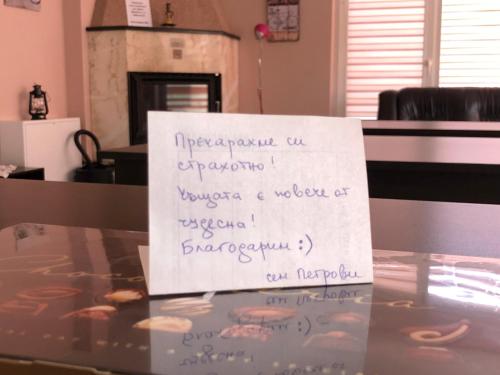 Прекарахме си
страхотно!
Къщата е повече от
чудесна!
Благодарим :)
сем Петрови